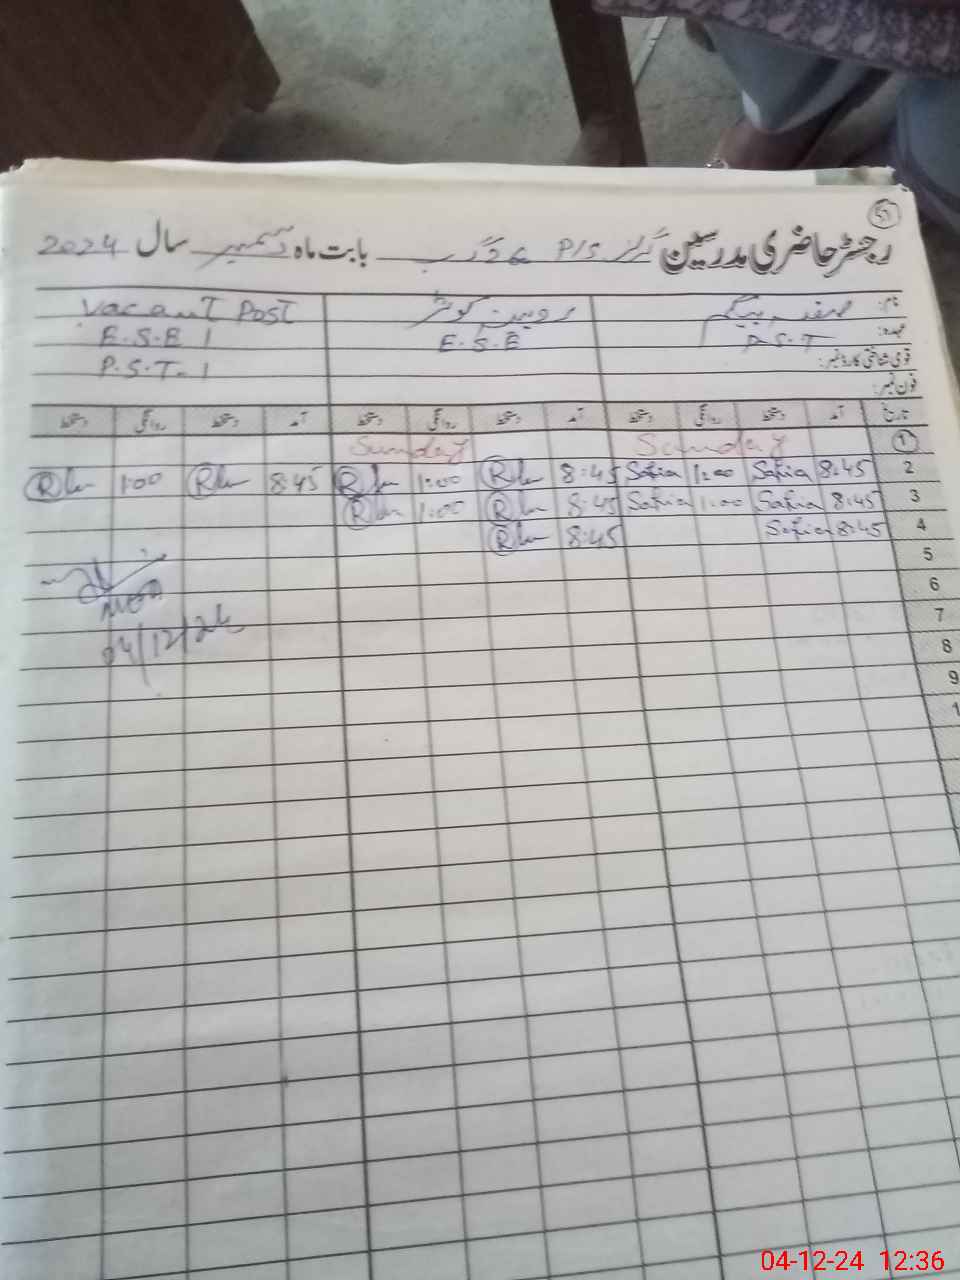 51
رجسٹر حاضری مدرسین گرلز P/S بابت ماہ دسمبر سال 2024
نام: صفیہ بیگم روبینہ کوثر Vacant Post
عہدہ: P.S.T E.S.E E.S.E 1
قومی شناختی کارڈ نمبر: P.S.T. 1
فون نمبر:
تاریخ آمد دستخط روانگی دستخط آمد دستخط روانگی دستخط آمد دستخط روانگی دستخط
1 Sunday Sunday
2 8:45 Safia 1:00 Safia 8:45 1:00 8:45 1:00
3 8:45 Safia 1:00 Safia 8:45 1:00
4 8:45 Safia 8:45
5
6
7
8
9
1
04/12/24
04-12-24 12:36